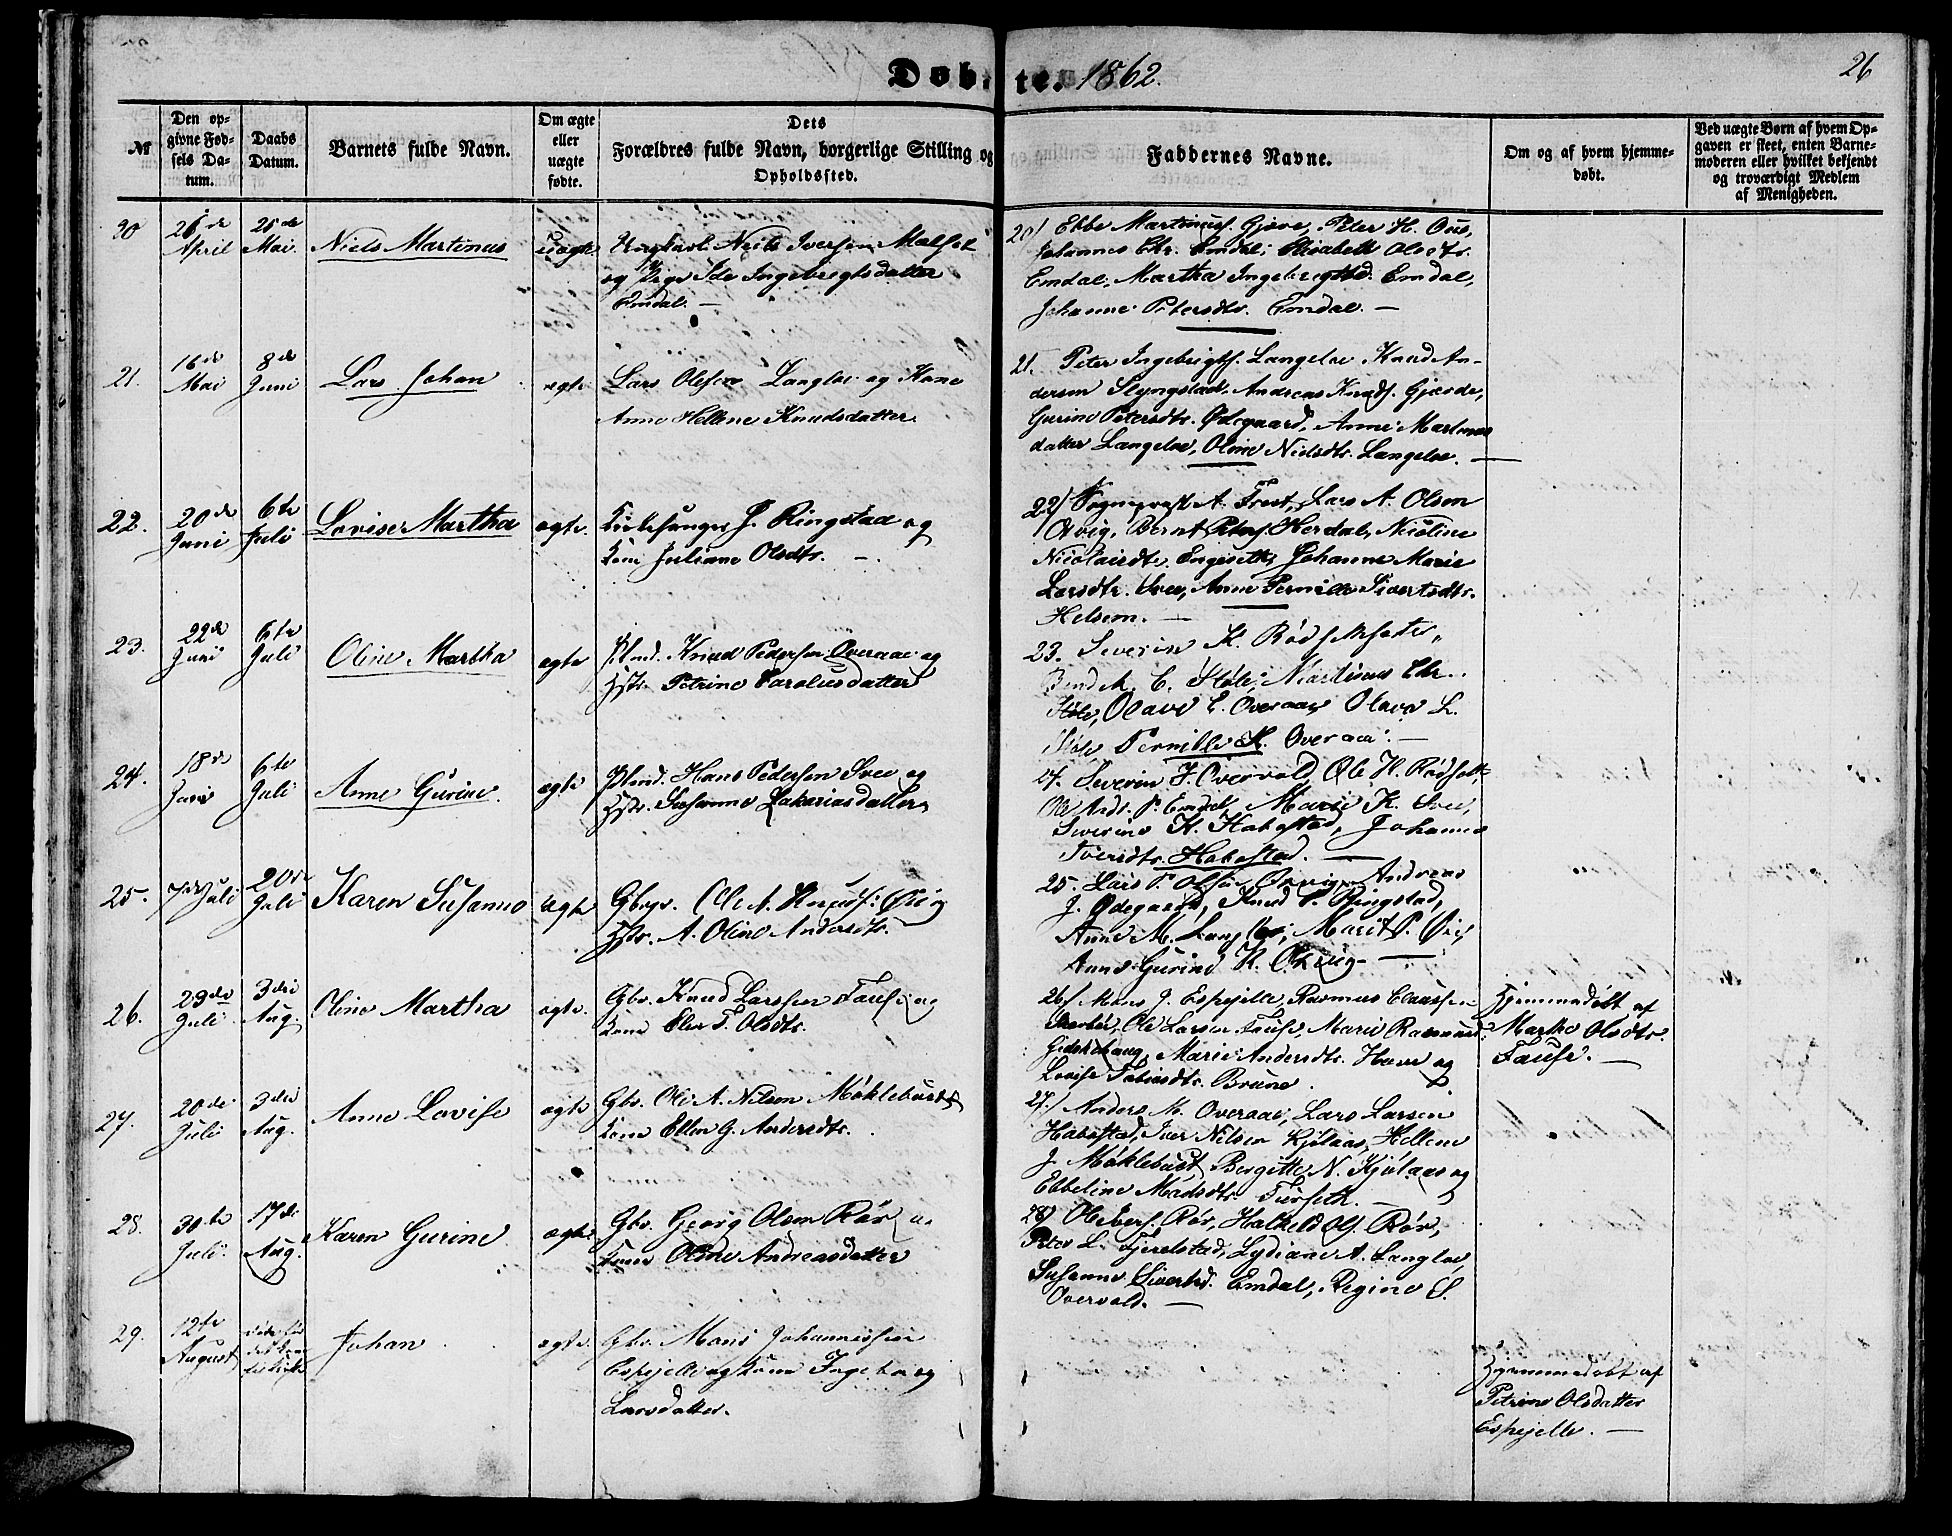 Døbte. 1862.
26
№
Den opgivne Fødsels Datum.
Daabs Datum.
Barnets fulde Navn.
Om ægte eller uægte fødte.
Dets Forældres fulde Navn, borgerlige Stilling og Opholdssted.
Faddernes Navne.
Om og af hvem hjemmedøbt.
Ved uægte Børn af hvem Opgaven er skeet, enten Barnemoderen eller hvilket bekjendt og troværdigt Medlem af Menigheden.
20
26de April
25de Mai.
Niels Martinus
uægte
Ungkarl Niels Iversen Malset
og Pige Ida Ingebrigtsdatter
Emdal. —
20/ Ebbe Martinuss. Gjøre, Peter H.
Johannes Chr. Emdal; Elisabeth Olsdtr.
Emdal, Martha Ingebrigtsd. Emdal,
Johanne Petersdtr. Emdal. —
21.
16de Mai
8de Juni
Lars Johan
ægte
Lars Olsen Langløe og Kone
Anne Hellene Knudsdatter.
21. Peter Ingebrigts. Langeloe, Knud An-
dersen Slyngstad, Andreas Knuds. Gjærde,
Gurine Petersdtr. Ødegaard, Anne Martinus
datter Langeloe, Oline Nielsdtr. Langeloe. —
22.
20de Juni
6te Juli
Lovise Martha
ægte.
Kirkesanger J. Ringstad og
Kone Juliane Olsdtr. —
22/ Sognepræst A. Frost, Lars A. Olsen
Ørvig, Bernt Peters. Herdal, Nicoline
Nicolaisdtr. Engeseth, Johanne Marie
Larsdtr. Svee, Anne Pernille Sivertsdtr.
Helsem. —
23.
22de Juni
6te Juli
Oline Martha
ægte
Plmd. Knud Pedersen Overaae og
Hstr. Petrine Carolusdatter
23. Severin K. Rødsæter,
C. Støle; Martinus Chr.
Støle, Olave E. Overaae, Olava L.
Støle Pernille K. Overaae. —
24.
18de Juni
6te Juli
Anne Gurine.
ægte
Plmd. Hans Pedersen Svee og
Hstr. Susanne Zakariasdatter
24. Severin J. Overvold, Ole H. Rødsæt,
Ole Andr. P. Emdal, Marie K. Svee,
Severine K. Habostad, Johanna
Iversdtr. Habostad. —
25.
7de Juli
20de Juli
Karen Susanne
ægte
Gbrgr. Ole A. Knuds: Øie og
Hstr. A. Oline Andersdtr.
25. Lars P. Olsen Ørvig, Andreas
J. Ødegaard, Knud P. Ringstad,
Anne M. Langløe; Marit P. Øie,
Anne Gurine K. Ørvig —
26.
23de Juli
3die Aug.
Oline Martha
ægte.
Gbr. Knud Larssen Fause og
Kone Elen T. Olsdtr.
26/ Mons J. Espejelle, Rasmus Claussen
Ole Larsen Fause, Marie Rasmusd.
Gidskehaug, Marie Andersdtr. Haue og
Lovise Fabiansdtr. Brune.
Hjemmedøbt af
Marthe Olsdtr.
Fause. —
27.
20de Juli
3die Aug.
Anne Lovise
ægte
Gbr. Ole A. Nilsen Møklebust
Kone Ellen G. Andersdtr.
27/ Anders M. Overaae, Lars Larsen
Habostad, Iver Nilsen Kjølaas, Hellene
J. Møklebust Bergitte N. Kjølaas og
Ebbeline Madsdtr. Furseth. —
28.
30te Juli
17de Aug.
Karen Gurine
ægte
Gbr. Georg Olsen Rør
Kone Oline Andreasdatter
28/ Rør, Halkeld Ols. Rør,
Peter L. Fjerelstad, Lydiane A. Langloe,
Susanne Sivertsd. Emdal, Regine S.
Overvold. —
29.
12te August
Johan
ægte.
Gbr. Mons Johannessen
Espejelle og Kone Ingeborg
Larsdatter.
Hjemmedøbt af
Petrine Olsdatter
Espejelle. —